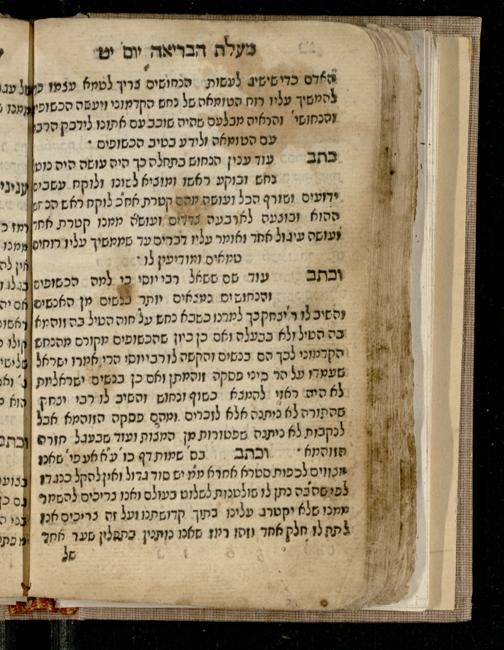 מעלת הבריאה יום יט
האדם כדי שישיג לעשות הנחושים צריך לטמא עצמו
להמשיך עליו רוח הטומאה של נחש הקדמוני ויעשה הכשופים
והנחושי' והראיה מבלעם שהיה שוכב עם אתונו לידבק הרבה
עם הטומאה ולידע בטיב הכשופים
כתב עוד ענין הנחוש בתחלה כך היה עושה היה נוטל
נחש ובוקע ראשו ומוציא לשונו ולוקח עשבים
ידועים ושורף הכל ועושה מהם קטרת אח"כ לוקח ראש הנחש
ההוא ובוצעה לארבעה צדדים ועושה ממנו קטרת אחד
ועושה עיגול אחד ואומר עליו דברים עד שממשיך עליו רוחים
טמאים ומודיעין לו
וכתב עוד שם ששאל רבי יוסי כי למה הכשופים
והנחושים נמצאים יותר בנשים מן האנשים
והשיב לו ר' יצחק כך למדנו כשבא נחש על חוה הטיל בה זוהמא
בה הטיל ולא בבעלה ואם כן כיון שהכשופים מקורם מהנחש
הקדמוני לכך הם בנשים והקשה לו רבי יוסי הרי אמרו ישראל
שעמדו על הר סיני פסקה זוהמתן ואם כן בנשים ישראליות
לא היה ראוי להמצא כשוף ונחוש והשיב לו רבי יצחק
שהתורה לא ניתנה אלא לזכרים ומהם פסקה הזוהמא אבל
לנקבות לא ניתנה שפטורות מן המצות ועוד שבעגל חזרה
הזוהמא וכתב בס' שמות דף כו ע"א אעפ"י שאנו
מצווים לכפות סטרא אחרא מ"מ יש סוד גדול ואין להקל כנגדו
לפי שהב"ה נתן לו שולטנות לשלוט בעולם ואנו צריכים להשמר
ממנו שלא יקטרג עלינו בתוך קדושתנו ועל זה צריכים אנו
לתת לו חלק אחד וזהו רמז שאנו נותנין בתפלין שער אחד
של